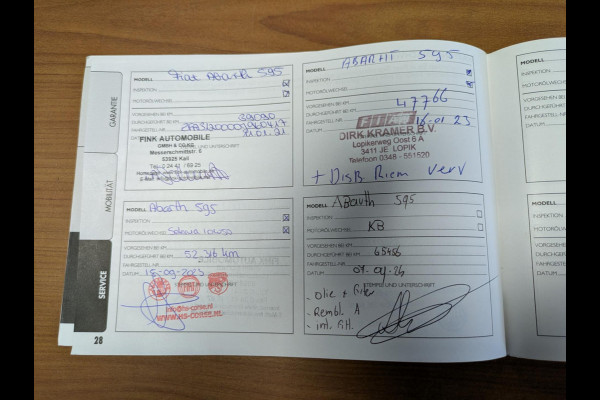 GARANTIE
MOBILITÄT
SERVICE
MODELL Fiat Abarth 595
INSPEKTION
MOTORÖLWECHSEL
VORGESEHEN BEI KM
DURCHGEFÜHRT BEI KM 39090
FAHRGESTELL-NR.
DATUM
FINK AUTOMOBILE
GMBH & CO.KG
Messerschmittstr. 6
53925 Kall
MODELL ABARTH 595
INSPEKTION
MOTORÖLWECHSEL
VORGESEHEN BEI KM
DURCHGEFÜHRT BEI KM 47766
FAHRGESTELL-NR.
DATUM 16-01 23
DIRK KRAMER B.V.
Lopikerweg Oost 6 A
3411 JE LOPIK
Telefoon 0348 - 551520
+ DisB Riem verv
MODELL Abarth 595
INSPEKTION
MOTORÖLWECHSEL Selenia 10W50
VORGESEHEN BEI KM
DURCHGEFÜHRT BEI KM 52.316 km
FAHRGESTELL-NR.
DATUM 18-09-2023
STEMPEL UND UNTERSCHRIFT
info@hs-corse.nl
WWW.HS-CORSE.NL
MODELL Abarth 595
INSPEKTION
MOTORÖLWECHSEL KB
VORGESEHEN BEI KM
DURCHGEFÜHRT BEI KM 65456
FAHRGESTELL-NR.
DATUM
STEMPEL UND UNTERSCHRIFT
- Olie + Filter
- Rembl. A
- int. F.H.
28
MODELL
INSPEKTION
MOTORÖLWECHSEL
VORGESEHEN
DURCHGEFÜHRT
FAHRGESTELL
DATUM
MODELL
INSPEKTION
MOTORÖLWECHSEL
VORGESEHEN
DURCHGEFÜHRT
FAHRGESTELL-N
DATUM